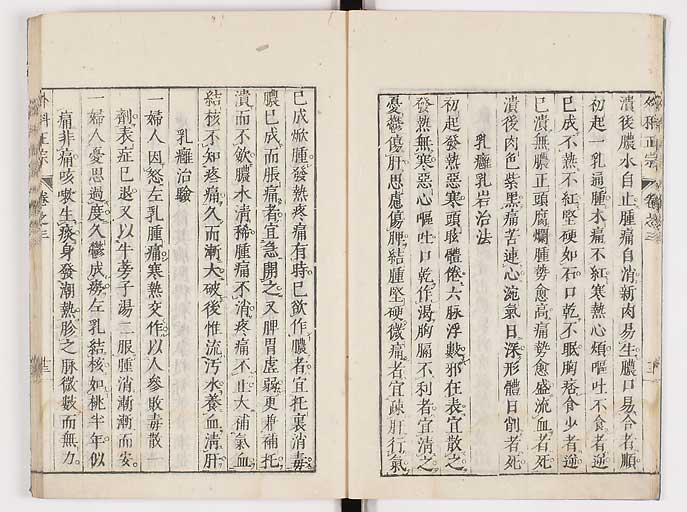 外科正宗 卷之三
潰後膿水自止腫痛自消新肉易生膿口易合者順
初起一乳通腫木痛不紅寒熱心煩嘔吐不食者逆
已成不熱不紅堅硬如石口乾不眠胸痞食少者逆
已潰無膿正頭腐爛腫勢愈高痛勢愈盛流血者死
潰後肉色紫黑痛苦連心洟氣日深形體日削者死
乳癰乳岩治法
初起發熱惡寒頭眩體倦六脉浮數邪在表宜散之
發熱無寒惡心嘔吐口乾作渴胸膈不利者宜清之
憂鬱傷肝思慮傷脾結腫堅硬微痛者宜疎肝行氣
已成焮腫發熱疼痛有時已欲作膿者宜托裏消毒
膿已成而脹痛者宜急開之又脾胃虛弱更兼補托
潰而不歛膿水清稀腫痛不消疼痛不止大補氣血
結核不知疼痛久而漸大破後惟流汚水養血清肝
乳癰治驗
一婦人因怒左乳腫痛寒熱交作以人參敗毒散一
劑表症已退又以牛蒡子湯二服腫消漸漸而安
一婦人憂思過度久鬱成勞左乳結核如桃半年似
痛非痛咳嗽生痰身發潮熱胗之脉微數而無力
外科正宗 卷之三 廿二